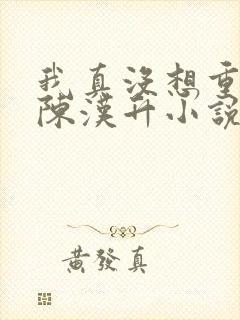 我真沒想重
陳漢升小說
黃發真